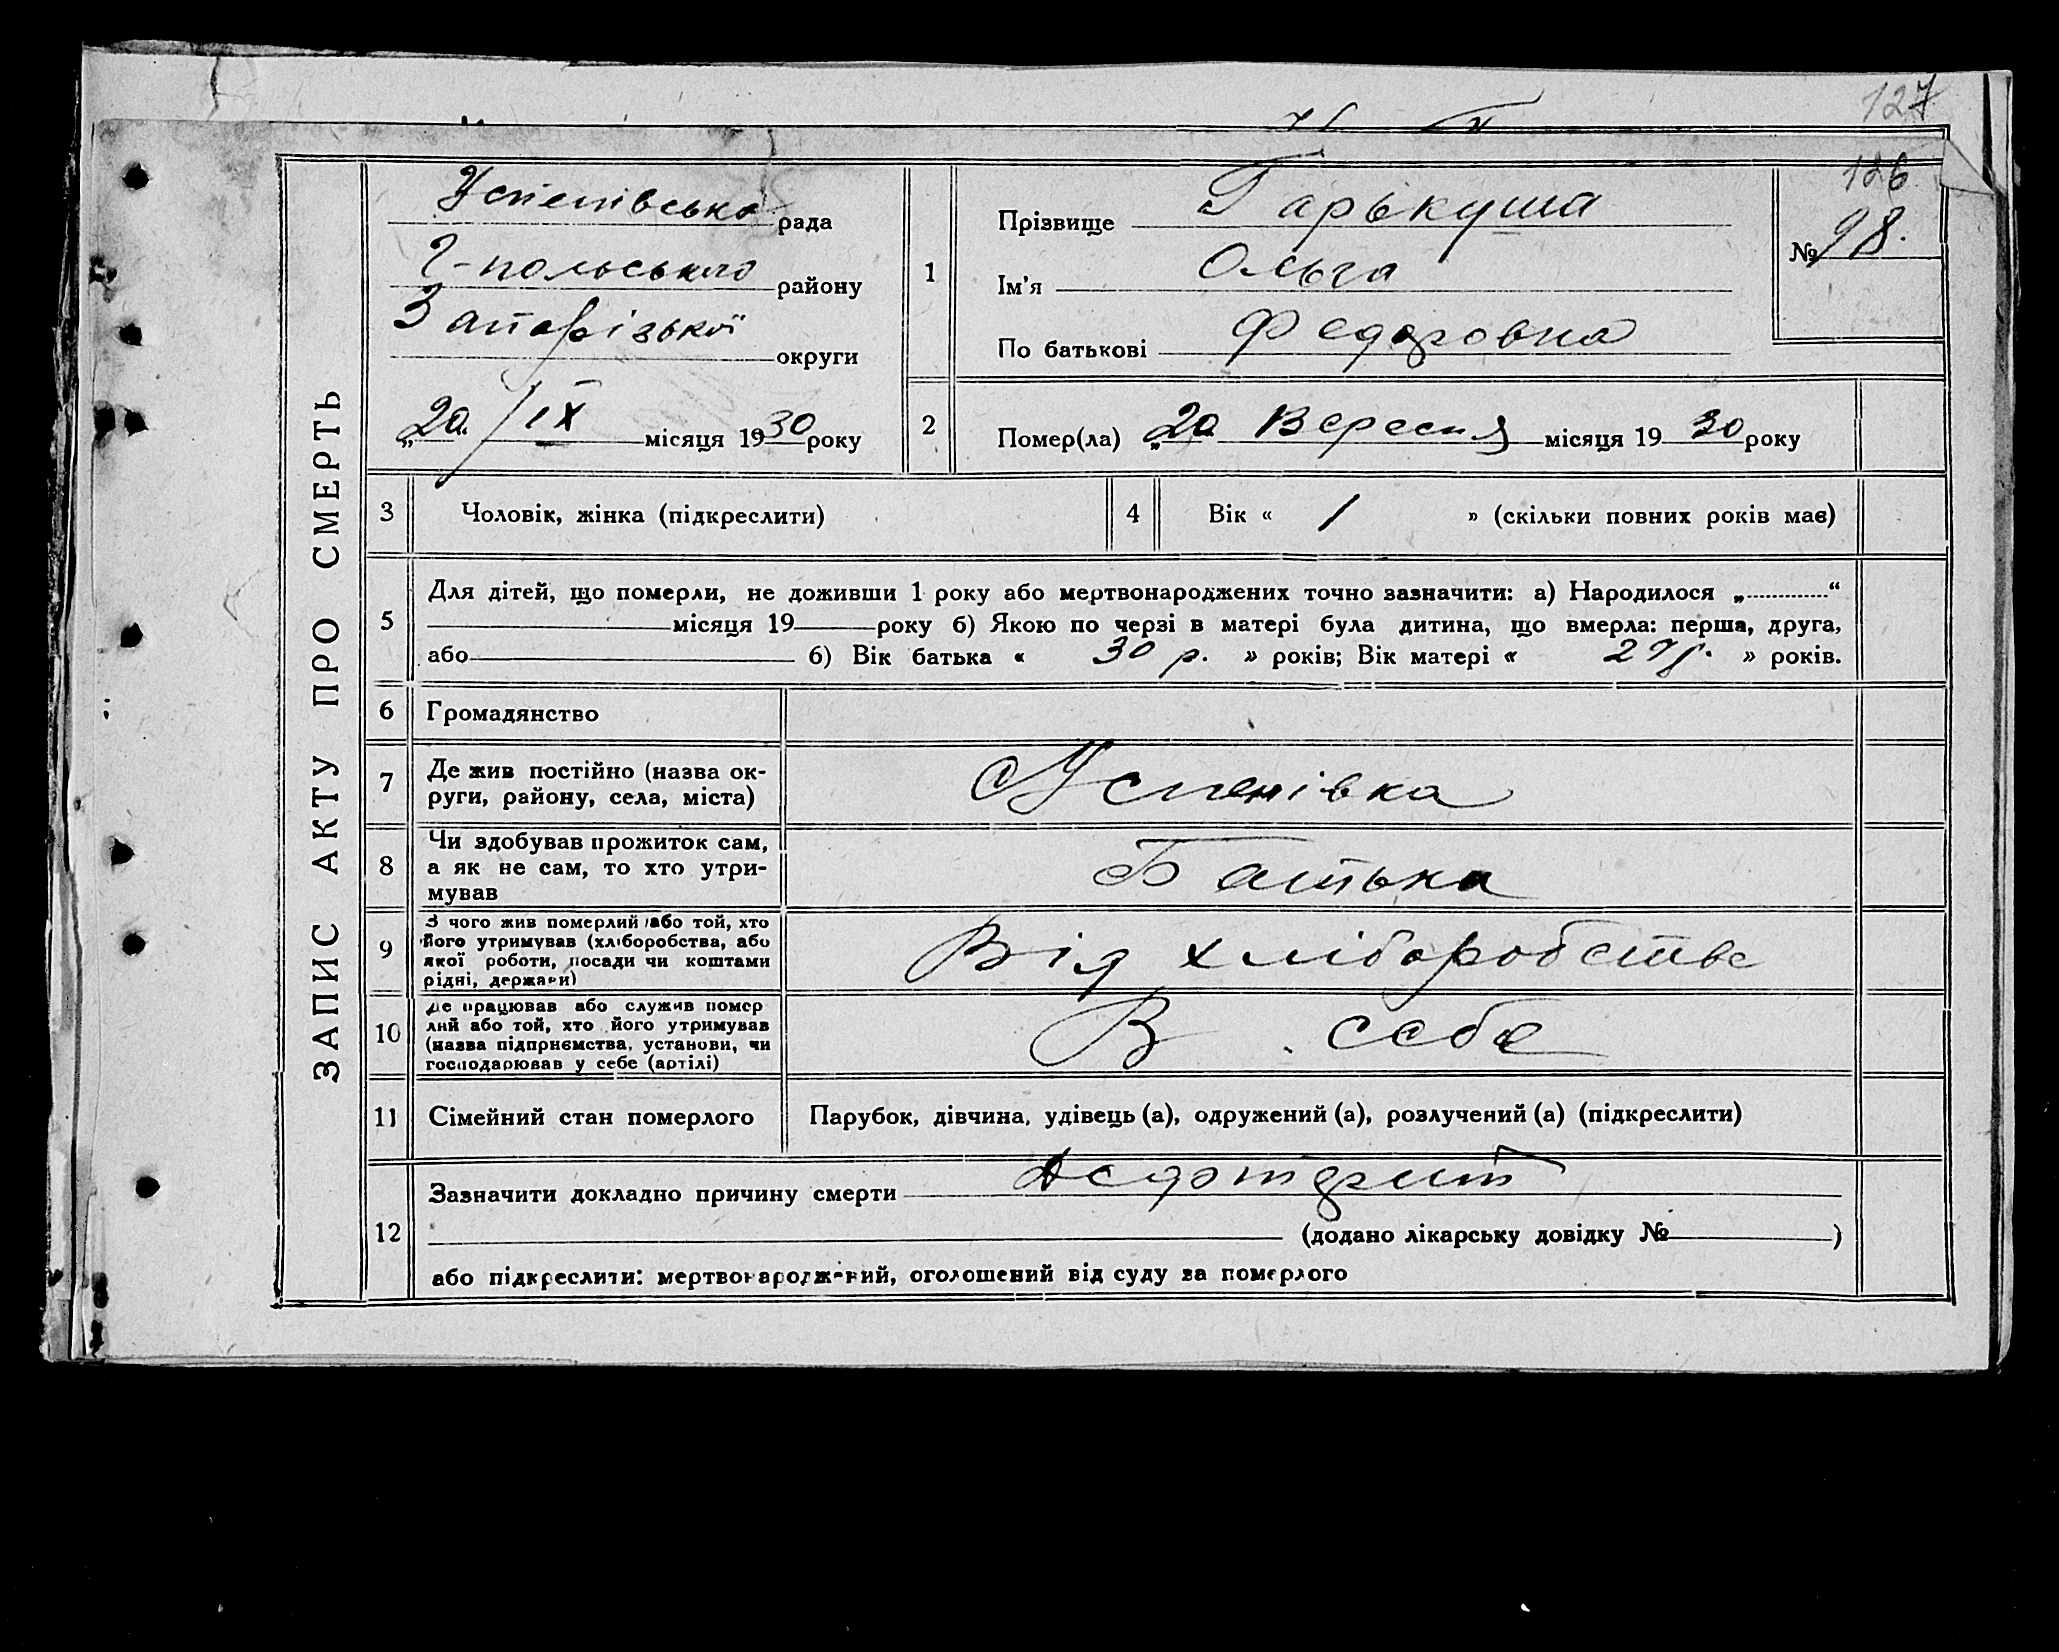 127
126
ЗАПИС АКТУ ПРО СМЕРТЬ
Успенівська рада
Г-польського району
Запорізької округи
„20“ /IX місяця 1930 року
1
Прізвище Гарькуша
Ім'я Ольга
По батькові Федоровна
№ 98.
2
Помер(ла) „20 Вересня місяця 1930 року
3 Чоловік, жінка (підкреслити)
4 Вік « 1 » (скільки повних років має)
5 Для дітей, що померли, не доживши 1 року або мертвонароджених точно зазначити: а) Народилося „ “
місяця 19 року б) Якою по черзі в матері була дитина, що вмерла: перша, друга,
або б) Вік батька « 30 р. » років; Вік матері « 27 р. » років.
6 Громадянство
7 Де жив постійно (назва ок-
руги, району, села, міста)
Успенівка
8 Чи здобував прожиток сам,
а як не сам, то хто утри-
мував
Батька
9 З чого жив померлий або той, хто
його утримував (хліборобства, або
якої роботи, посади чи коштами
рідні, держави)
Від хліборобства
10 Де працював або служив помер
лий або той, хто його утримував
(назва підприємства, установи, чи
господарював у себе (артілі)
В себе
11 Сімейний стан померлого Парубок, дівчина, удівець (а), одружений (а), розлучений (а) (підкреслити)
12 Зазначити докладно причину смерти
(додано лікарську довідку № )
або підкреслити: мертвонароджений, оголошений від суду за померлого